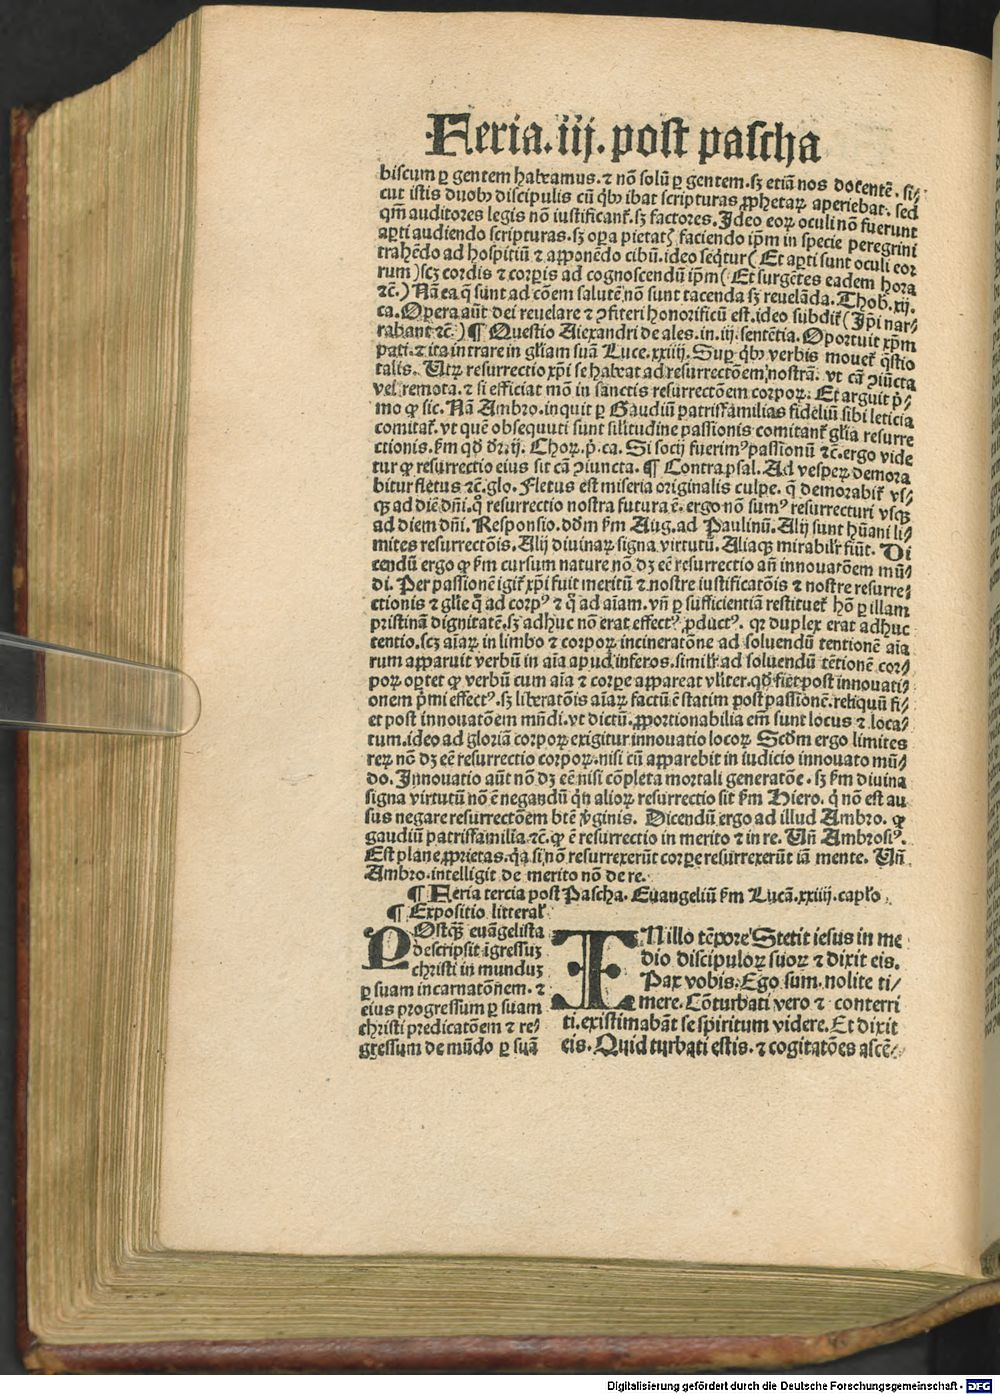 Feria.iij.post pascha
biscum ꝑ gentem habeamus.⁊ nō solū ꝑ gentem.sꝫ etiā nos docentē. si⸗
cut istis duobꝰ discipulis cū ꝗbꝰ ibat scripturas ꝓphetaꝝ aperiebat. sed
qm̄ auditores legis nō iustificant̄.sꝫ factores. Ideo eoꝝ oculi nō fuerunt
aꝑti audiendo scripturas.sꝫ oꝑa pietatꝭ faciendo ip̄m in specie peregrini
trahēdo ad hospitiū ⁊ apponēdo cibū.ideo seq̄tur (Et aꝑti sunt oculi eor
rum) scꝫ cordis ⁊ corꝑis ad cognoscendū ip̄m (Et surgētes eadem hora
⁊c̄.) Nā ea q̄ sunt ad cōem salutē nō sunt tacenda sꝫ reuelāda. Thob.xij.
ca. Opera aūt dei reuelare ⁊ ꝯfiteri honorificū est.ideo subdit̄ (Ip̄i nar⸗
rabant ⁊c̄.) ¶ Questio Alexandri de ales.in.iij.sentētia. Oportuit xp̄m
pati.⁊ ita intrare in gl̄iam suā Luce.xxiiij. Suꝑ ꝗbꝰ verbis mouet̄ q̄stio
talis. Utꝝ resurrectio xp̄i se habeat ad resurrectōem nostrā. vt cā ꝯiūcta
vel remota.⁊ si efficiat mō in sanctis resurrectōem corpoꝝ. Et arguit p̄⸗
mo ꝙ sic. Nā Ambro.inquit ꝑ Gaudiū patrisfamilias fideliū sibi leticia
comitat̄.vt quē obsequuti sunt silitudine passionis comitant̄ gl̄ia resurre
ctionis.fm̄ qd̄ dr̄.ij. Choꝝ.p̄.ca. Si socij fuerimꝰ passionū ⁊c̄.ergo vide
tur ꝙ resurrectio eius sit cā ꝯiuncta. ¶ Contra psal. Ad vesꝑeꝝ demora
bitur fletus ⁊c̄.glo. Fletus est miseria originalis culpe. q̄ demorabit̄ vs⸗
qꝫ ad diē dn̄i.q̊ resurrectio nostra futura ē. ergo non sumꝰ resurrecturi vsqꝫ
ad diem dn̄i. Responsio. dd̄m fm̄ Aug.ad Paulinū. Alij sunt hūani li⸗
mites resurrectōis. Alij diuinaꝝ signa virtutū. Aliaqꝫ mirabilr̄ fiūt. Di
cendū ergo ꝙ fm̄ cursum nature nō dꝫ eē resurrectio an̄ innouatōem mū⸗
di. Per passionē igit̄ xp̄i fuit meritū ⁊ nostre iustificatōis ⁊ nostre resurre⸗
ctionis ⁊ gl̄ie q̄ ad corpꝰ ⁊ q̄ ad aīam. vn̄ ꝑ sufficientiā restituet̄ hō ꝑ illam
pristinā dignitatē.sꝫ adhuc nō erat effectꝰ ꝓductꝰ. qꝛ duplex erat adhuc
tentio.scꝫ aīaꝝ in limbo ⁊ corpoꝝ incineratōne ad soluendū tentionē aīa
rum apparuit verbū in aīa apud inferos.similr̄ ad soluendū tētionē cor⸗
poꝝ oꝑtet ꝙ verbū cum aīa ⁊ corꝑe appareat vl̄iter.qd̄ fiet post innouati⸗
onem p̄mi effectꝰ.sꝫ liberatōis aīaꝝ factū ē statim post passionē.reliquū fi⸗
et post innouatōem mūdi.vt dictū. ꝓportionabilia em̄ sunt locus ⁊ loca⸗
tum.ideo ad gloriā corpoꝝ exigitur innouatio locoꝝ Scd̄m ergo limites
reꝝ nō dꝫ eē resurrectio corpoꝝ.nisi cū apparebit in iudicio innouato mū⸗
do. Innouatio aūt nō dꝫ eē nisi cōpleta mortali generatōe. sꝫ fm̄ diuina
signa virtutū nō ē negandū qn̄ alioꝝ resurrectio sit fm̄ Hiero. q̄ nō est au
sus negare resurrectōem btē v̄ginis. Dicendū ergo ad illud Ambro. ꝙ
gaudiū patrisfamilia.⁊c̄.ꝙ ē resurrectio in merito ⁊ in re. Un̄ Ambrosiꝰ.
Est plane ꝓprietas.q̄a si nō resurrexerūt corꝑe resurrexerūt iā mente. Un̄
Ambro.intelligit de merito nō de re.
¶ Feria tercia post Pascha. Euangeliū fm̄ Lucā.xxiiij.capl̄o
¶ Expositio litteral̄
POstqꝫ euāgelista
descripsit igressuꝫ
christi in munduꝫ
ꝑ suam incarnatōnem. ⁊
eius progressum ꝑ suam
christi predicatōem ⁊ re⸗
gressum de mūdo ꝑ suā
IN illo tēpore Stetit iesus in me
dio discipuloꝝ suoꝝ ⁊ dixit eis.
Pax vobis. Ego sum. nolite ti⸗
mere. Cōturbati vero ⁊ conterri
ti.existimabāt se spiritum videre. Et dixit
eis. Quid turbati estis. ⁊ cogitatōes ascē⸗
Digitalisierung gefördert durch die Deutsche Forschungsgemeinschaft - DFG